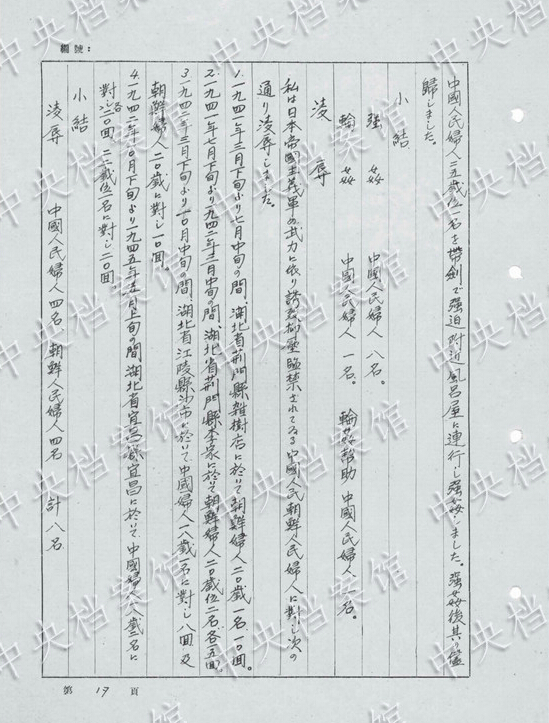 編號：
中國人民婦人三五歳位一名を帶劍で强迫附近風呂屋に連行し强姦しました。强姦後其の儘
歸しました。
小結
强姦 中國人民婦人 八名。
輪姦 中國人民婦人 一名。 輪姦幇助 中國人民婦人 一名。
凌辱
私は日本帝國主義軍の武力に依り誘
監禁されてゐる中國人民朝鮮人民婦人に對し次の
通り凌辱しました。
1.一九四一年三月下旬より七月中旬の間、湖北省荊門縣雑樹店に於いて朝鮮婦人二〇歳一名一〇回。
2.一九四一年七月下旬より一九四二年三月中旬の間、湖北省荊門縣李家に於て朝鮮婦人二〇歳位二名各五回。
3.一九四二年三月下旬より一〇月中旬の間、湖北省江陵縣沙市に於いて中國婦人一八歳一名に對し八回及
朝鮮婦人二〇歳に對し一〇回。
4.一九四二年一〇月下旬より一九四五年
月上旬の間湖北省宜昌縣宜昌に於いて、中國婦人一八歳二名に
對し各二〇回、二二歳位一名に對し二〇回。
小結
凌辱 中國人民婦人四名、朝鮮人民婦人四名 計八名
第 19 頁
中央档案馆